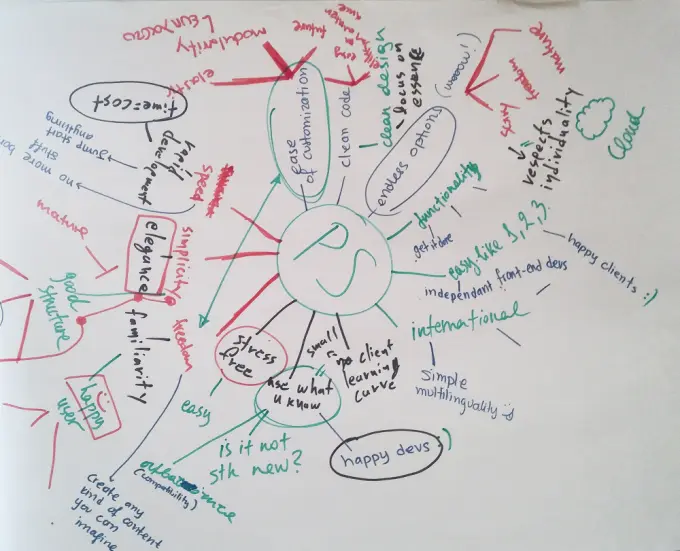 PS
ease
of customization
modularity
elastic
future
easy
clean code
clean design
- focus on
essence
endless options
(woooow!)
mature
freedom
trust
respects
individuality
Cloud
functionality
get it done
easy like 1,2,3.
happy clients :)
independant front-end devs
international
simple
multilinguality
small
no client
learning
curve
use what
u know
happy devs :)
is it not
sth new?
(compatibility)
stress
free
easy
freedom
create any
kind of content
you can
imagine
simplicity
elegance
familiarity
happy
user
good
structure
mature
speed
rapid
development
time=cost
Jump start
anything
no more
stuff